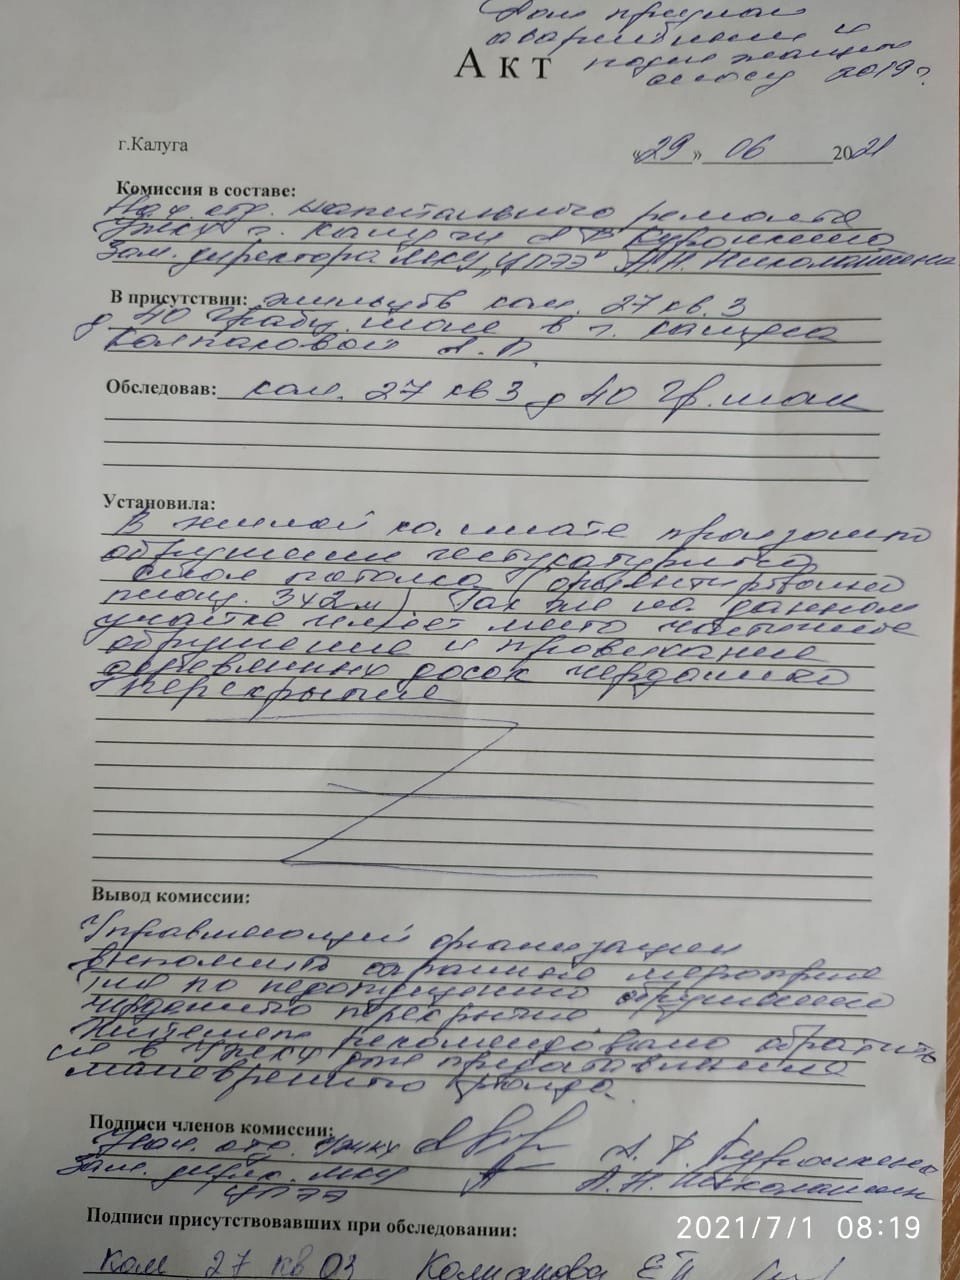 Дом признан
аварийным и
подлежащим
сносу 2019г.
Акт
г.Калуга
«29» 06 2021
Комиссия в составе:
Нач. отд. капитального ремонта
УЖКХ г. Калуги
Зам. директора МКУ "ЦПЭЭ" А.Н.
В присутствии: жильцов ком. 27 кв. 3
д 40 Грабц. шоссе в г. Калуга
Обследовав: ком. 27 кв 3 д 40 Гр. шоссе
Установила:
В жилой комнате произошло
обрушение штукатурного
слоя потолка (ориентировочно
площ. 3х2м). Так же на данном
участке имеет место частичное
обрушение и провисание
деревянных досок чердачного
перекрытия
Вывод комиссии:
Управляющей организации
выполнить охранные мероприя
тия по недопущению обрушения
чердачного перекрытия
Жителям рекомендовано обратить
ся в УЖКХ для предоставления
маневренного фонда.
Подписи членов комиссии:
Нач. отд. УЖКХ
Зам. дирек. МКУ А.Н.
ЦПЭЭ
Подписи присутствовавших при обследовании:
Ком 27 кв 03
2021/7/1 08:19